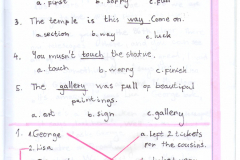 a. first b. sorry c. pull
3. The temple is this way. Come on.
a. section b. way c. luck
4. You musn't touch the statue.
a. touch b. worry c. finish
5. The gallery was full of beautiful
paintings.
a. art b. sign c. gallery
1. George a. left 2 tickets
for the cousins.
2. Lisa